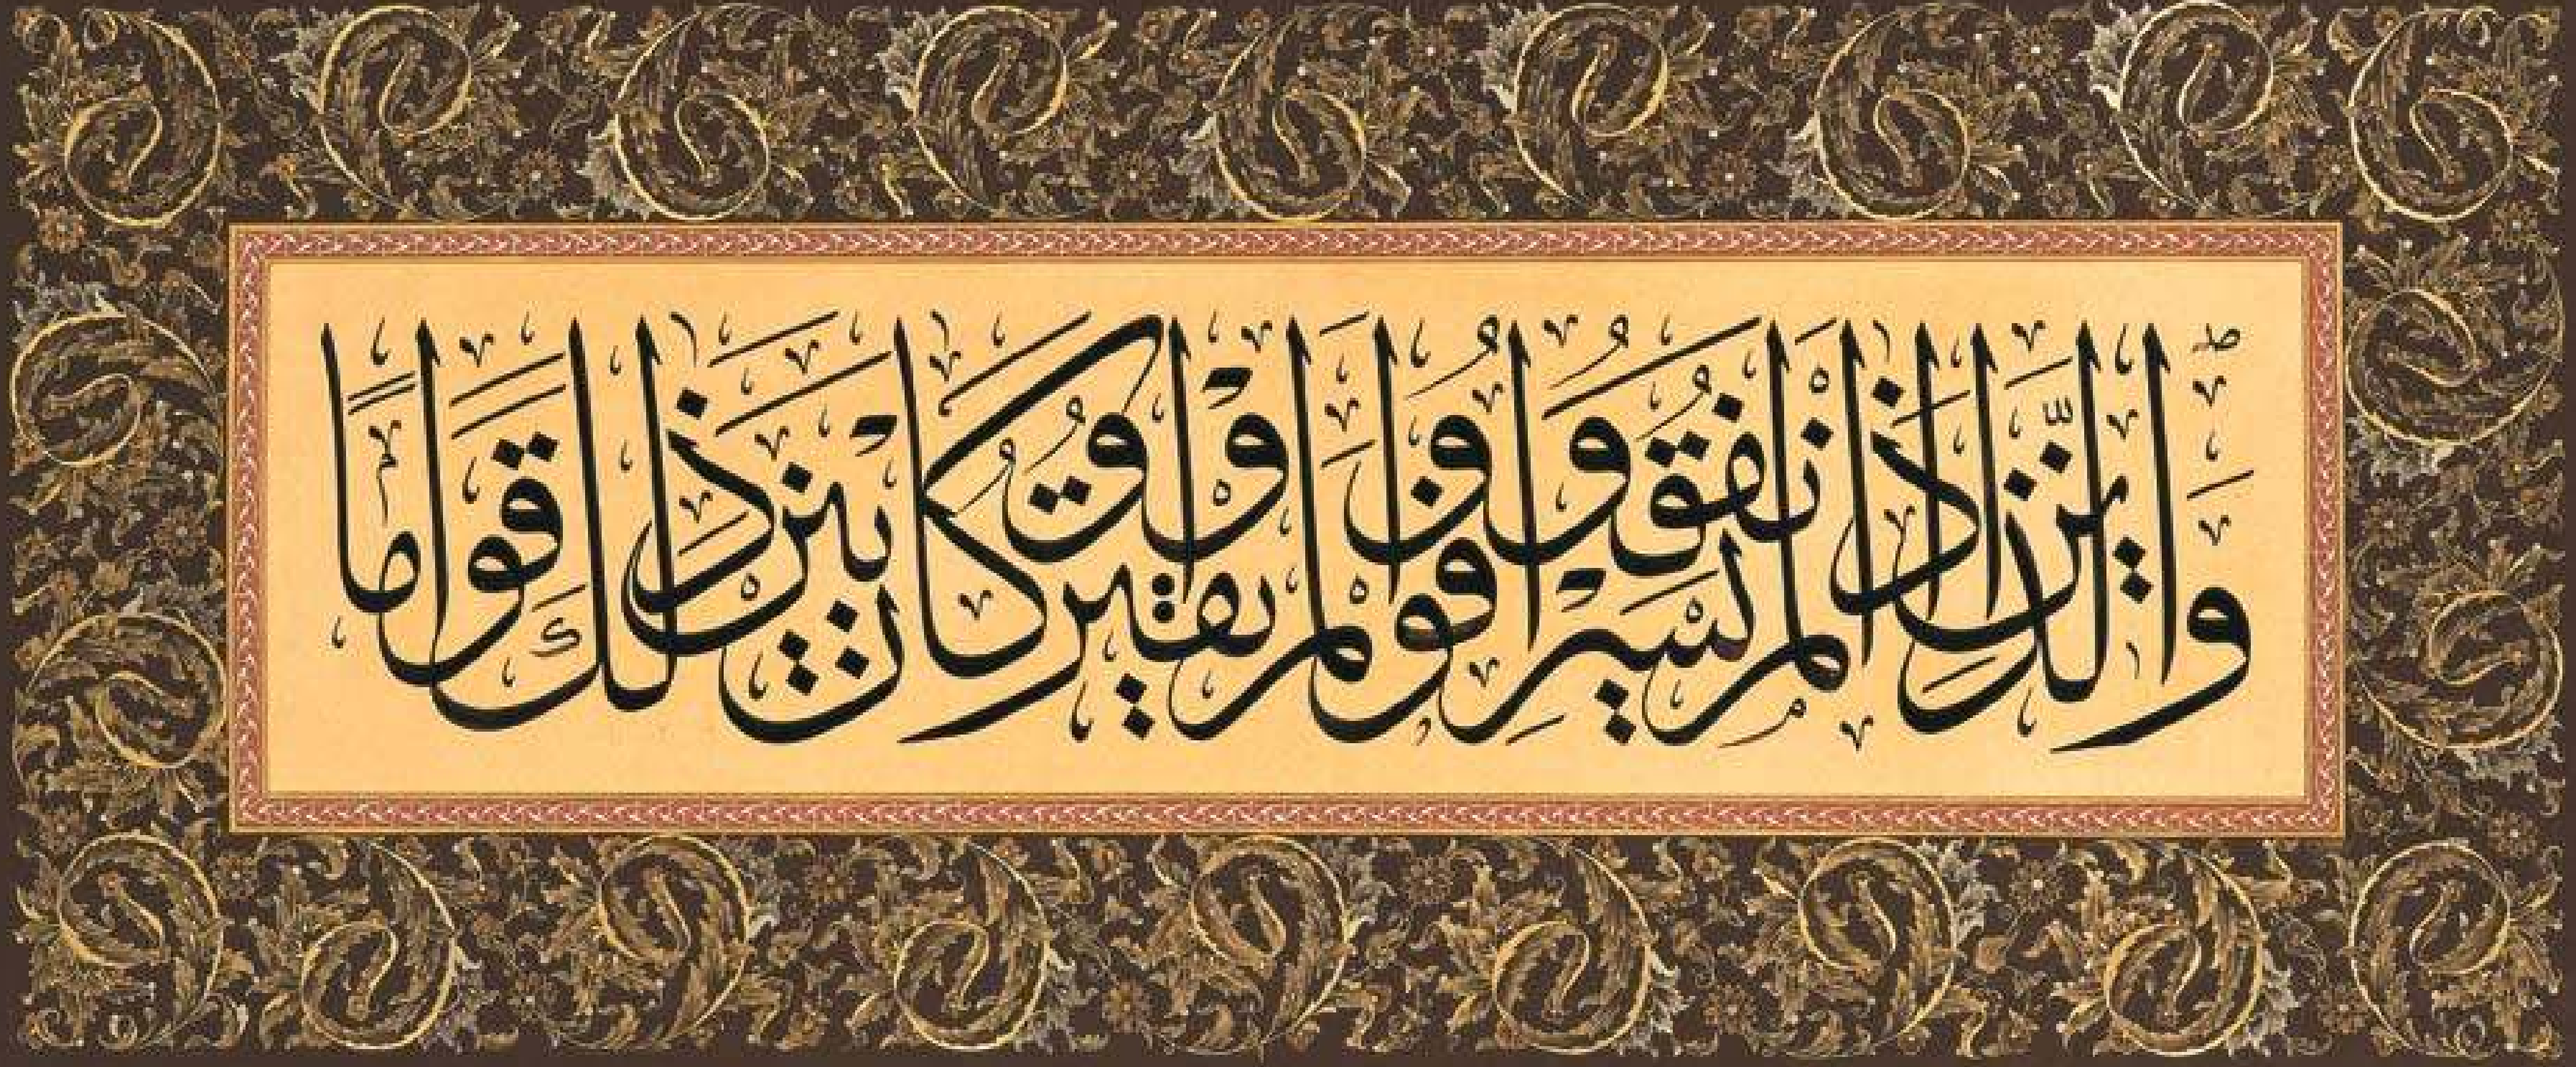 وَالَّذِينَ إِذَا أَنْفَقُوا لَمْ يُسْرِفُوا وَلَمْ يَقْتُرُوا وَكَانَ بَيْنَ ذَٰلِكَ قَوَامًا